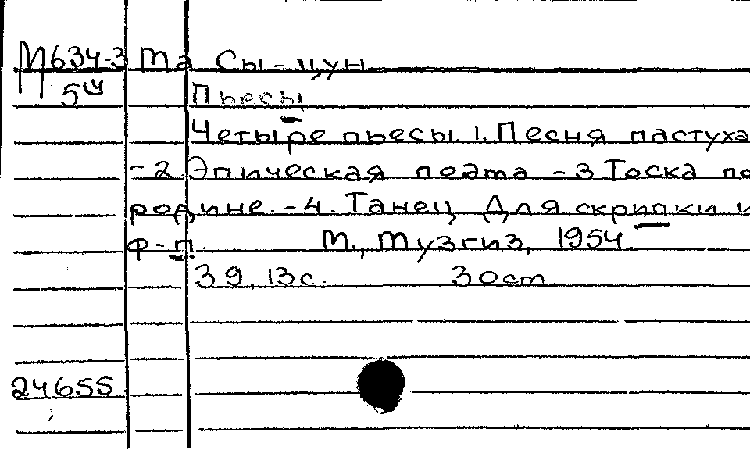 М634-3 Ma Сы-цун
5ш Пьесы
Четыре пьесы. 1. Песня пастуха
-2. Эпическая поэта - 3 Тоска по
родине. -4. Танец Для скрипки и
ф-п. М., Музгиз, 1954
39, 13 с. 30cm
24655